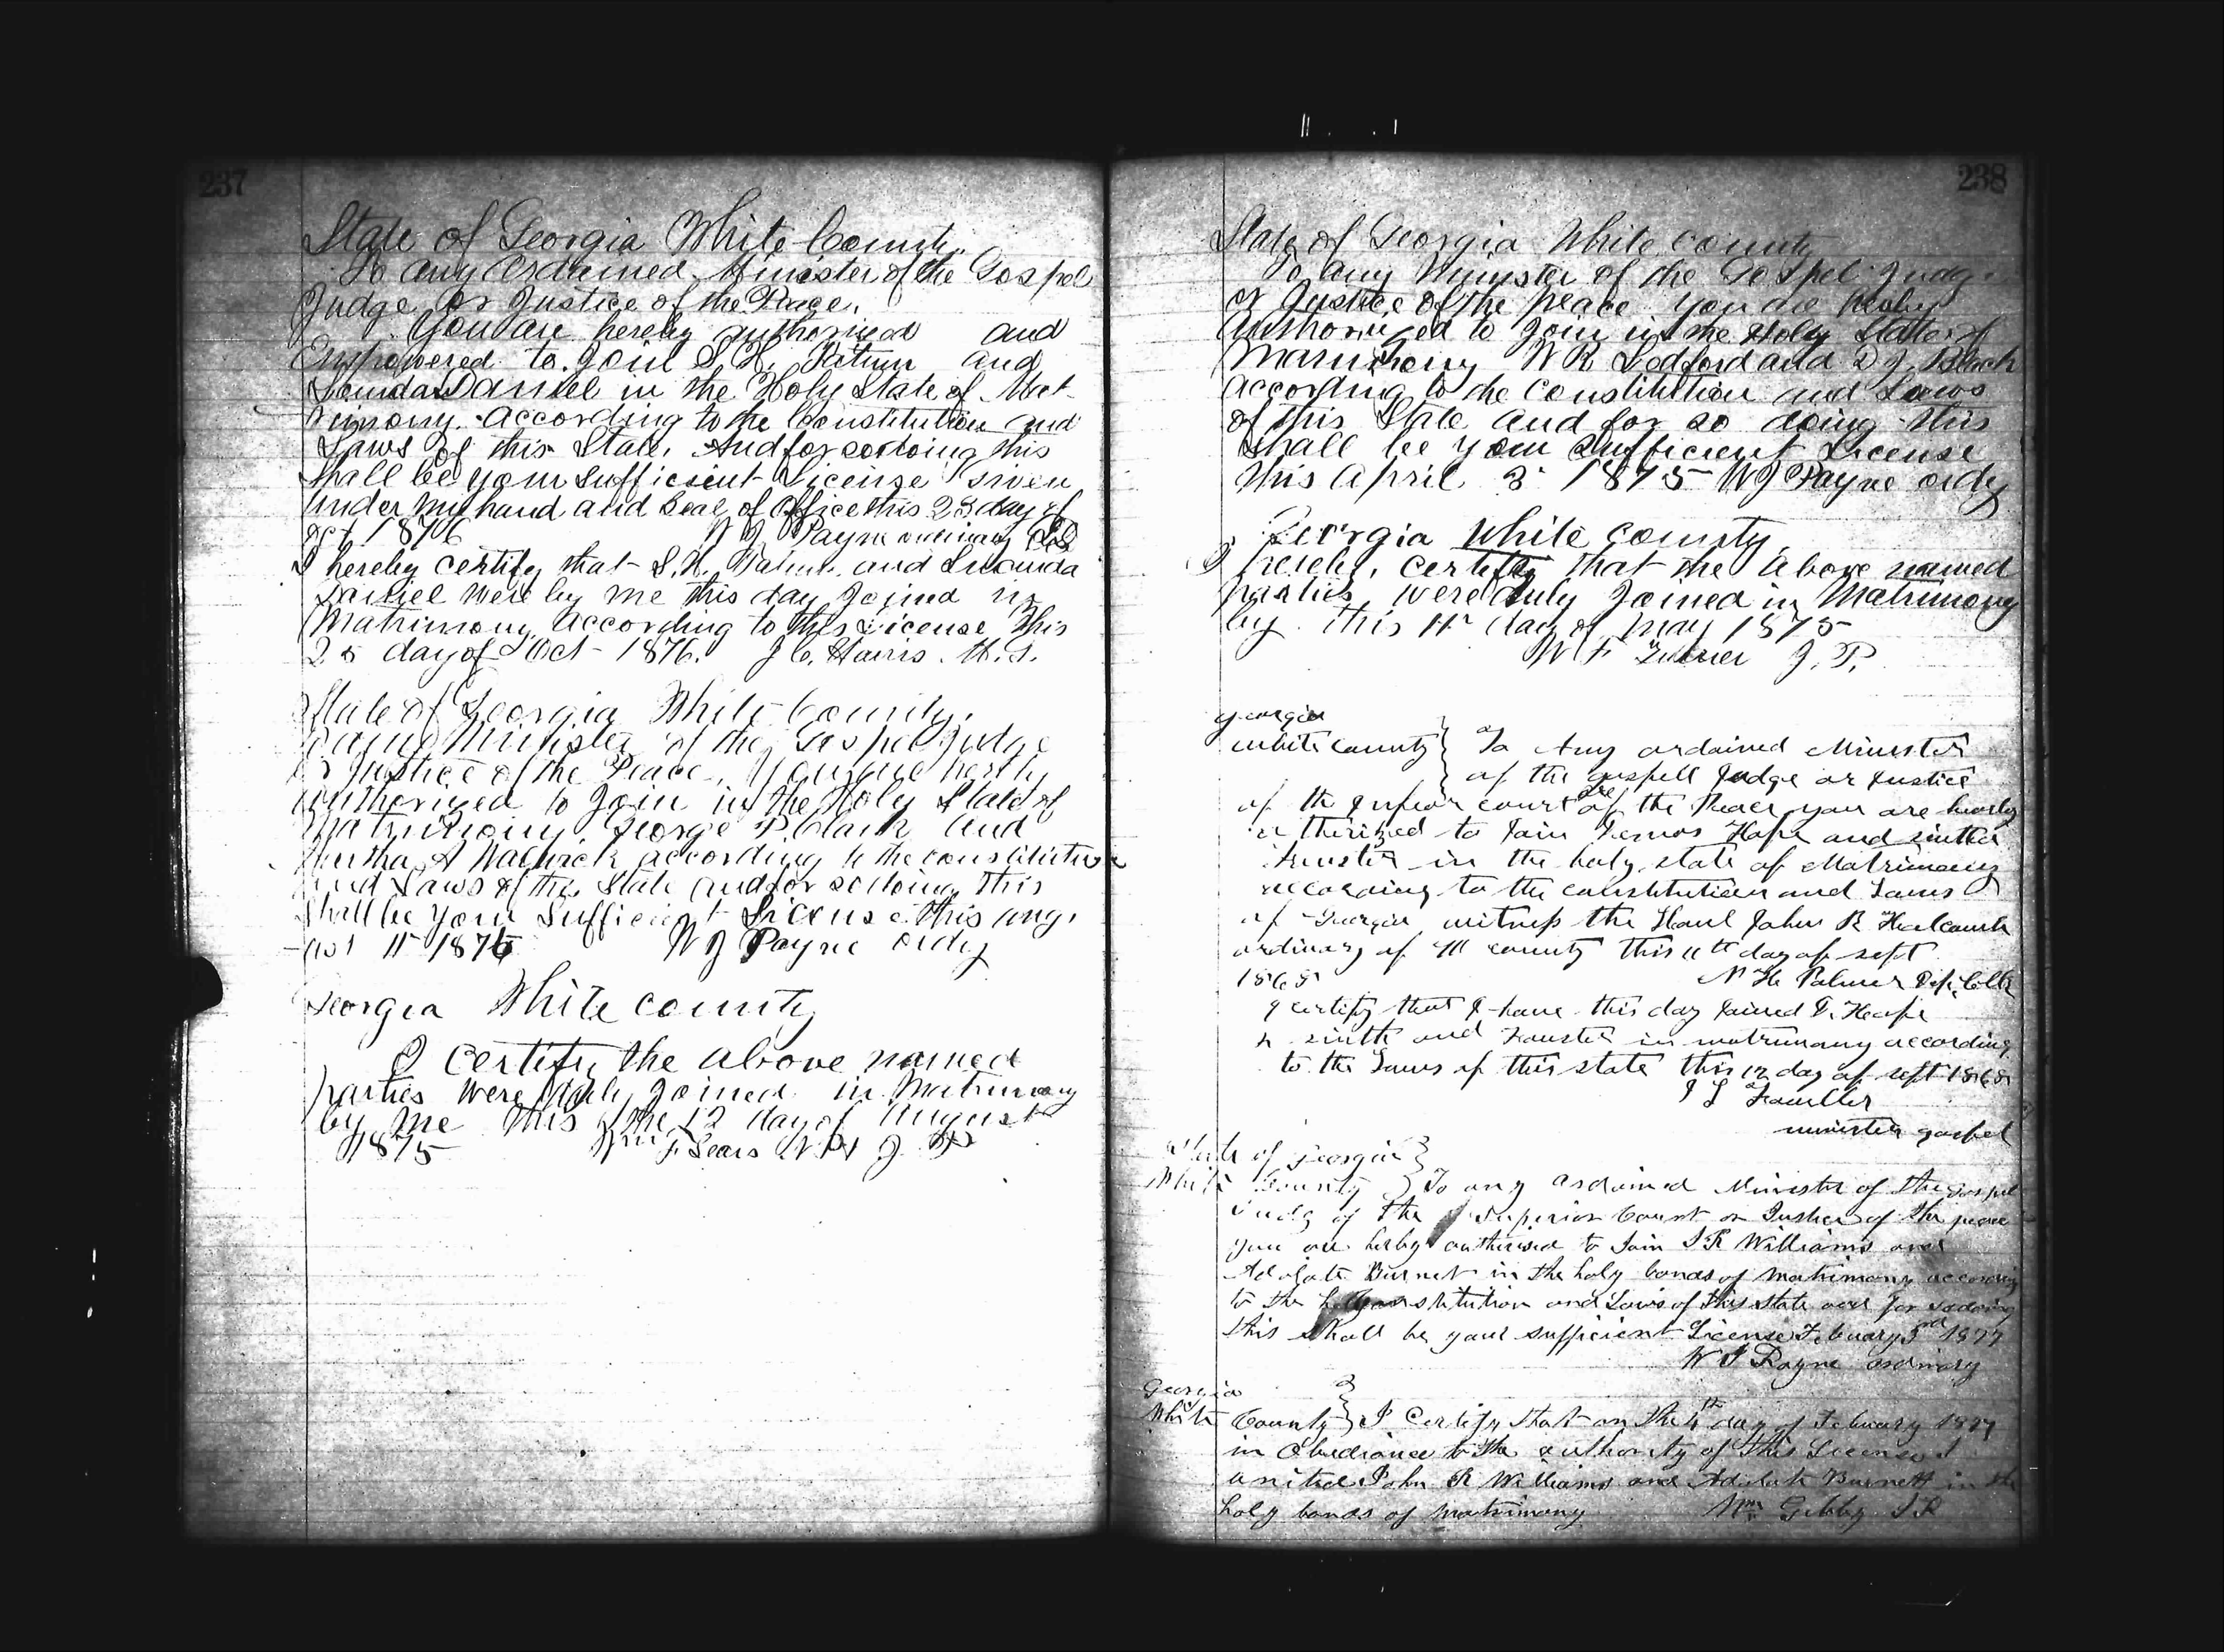 237
State of Georgia White County
To any Ordained Minister of the Gospel
Judge or Justice of the Peace.
You are hereby authorised and
Empowered to Join S. H. and
Daniel in the Holy State of Mat-
rimony. According to the Constitution and
Laws of this State. And for so doing this
Shall be your Sufficient License Given
under my hand and Seal of Office this 23 day of
Oct 1876 W J Payne ordinary
I hereby certify that S. H. and
Daniel were by me this day Joined in
Matrimony According to this License This
25 day of Oct 1876. J C. Harris M. G.
State of Georgia White County,
To any Minister of the Gospel Judge
or Justice of the Peace. You are hereby
authorized to Join in the Holy State of
Matrimony George P. Clark and
Martha A according to the constitution
and Laws of this State and for so doing this
Shall be your Sufficient License this aug.
ust 11 1875 W J Payne Ordy
Georgia White county
I certify the above named
parties were duly Joined in Matrimony
by me this the 12 day of August
1875 Wm F Sears J P
238
State of Georgia White county
To any Minister of the Gospel Judge
or Justice of the peace you are hereby
Authorized to Join in the Holy State of
Marimony W R Ledford and D J. Black
according to the constitution and Laws
of this State and for so doing this
Shall be your Sufficient License
this April 3 1875 W J Payne ordy
Georgia White county
I hereby certify that the above named
parties were duly Joined in Matrimony
by this 11 day of may 1875
W F J. P.
georgia
white county } To Any ordained Minister
of the gospell Judge or Justice
of the Inferior court or of the Peace you are hearby
authirized to Join Hope and
in the holy state of Matrimony
according to the constitution and Laws
of Georgia witness the Honl John R
ordinary of county this 11th day of sept
1868 N H Palmer Dep. Clk
I certify that I have this day Joined
& and in matrimony according
to the Laws of this state this 12 day of sept 1868
minister gospel
State of Georgia }
White County } To any ordained Minister of the Gospel
Judg of the Superior Court or Justice of the peace
you are herby authorised to Join J R Williams and
Adolate Burnet in the holy bonds of matrimony according
to the Constitution and Laws of this State and for so doing
this Shall be your sufficient License Febuary 3rd 1877
W J Payne ordinary
Georgia
White County } I Certify that on the 4th day of Febuary 1877
in Obediance to the authority of this License I
united John R Williams and Adolate Burnett in the
holy bonds of matrimony Wm Gibby J P